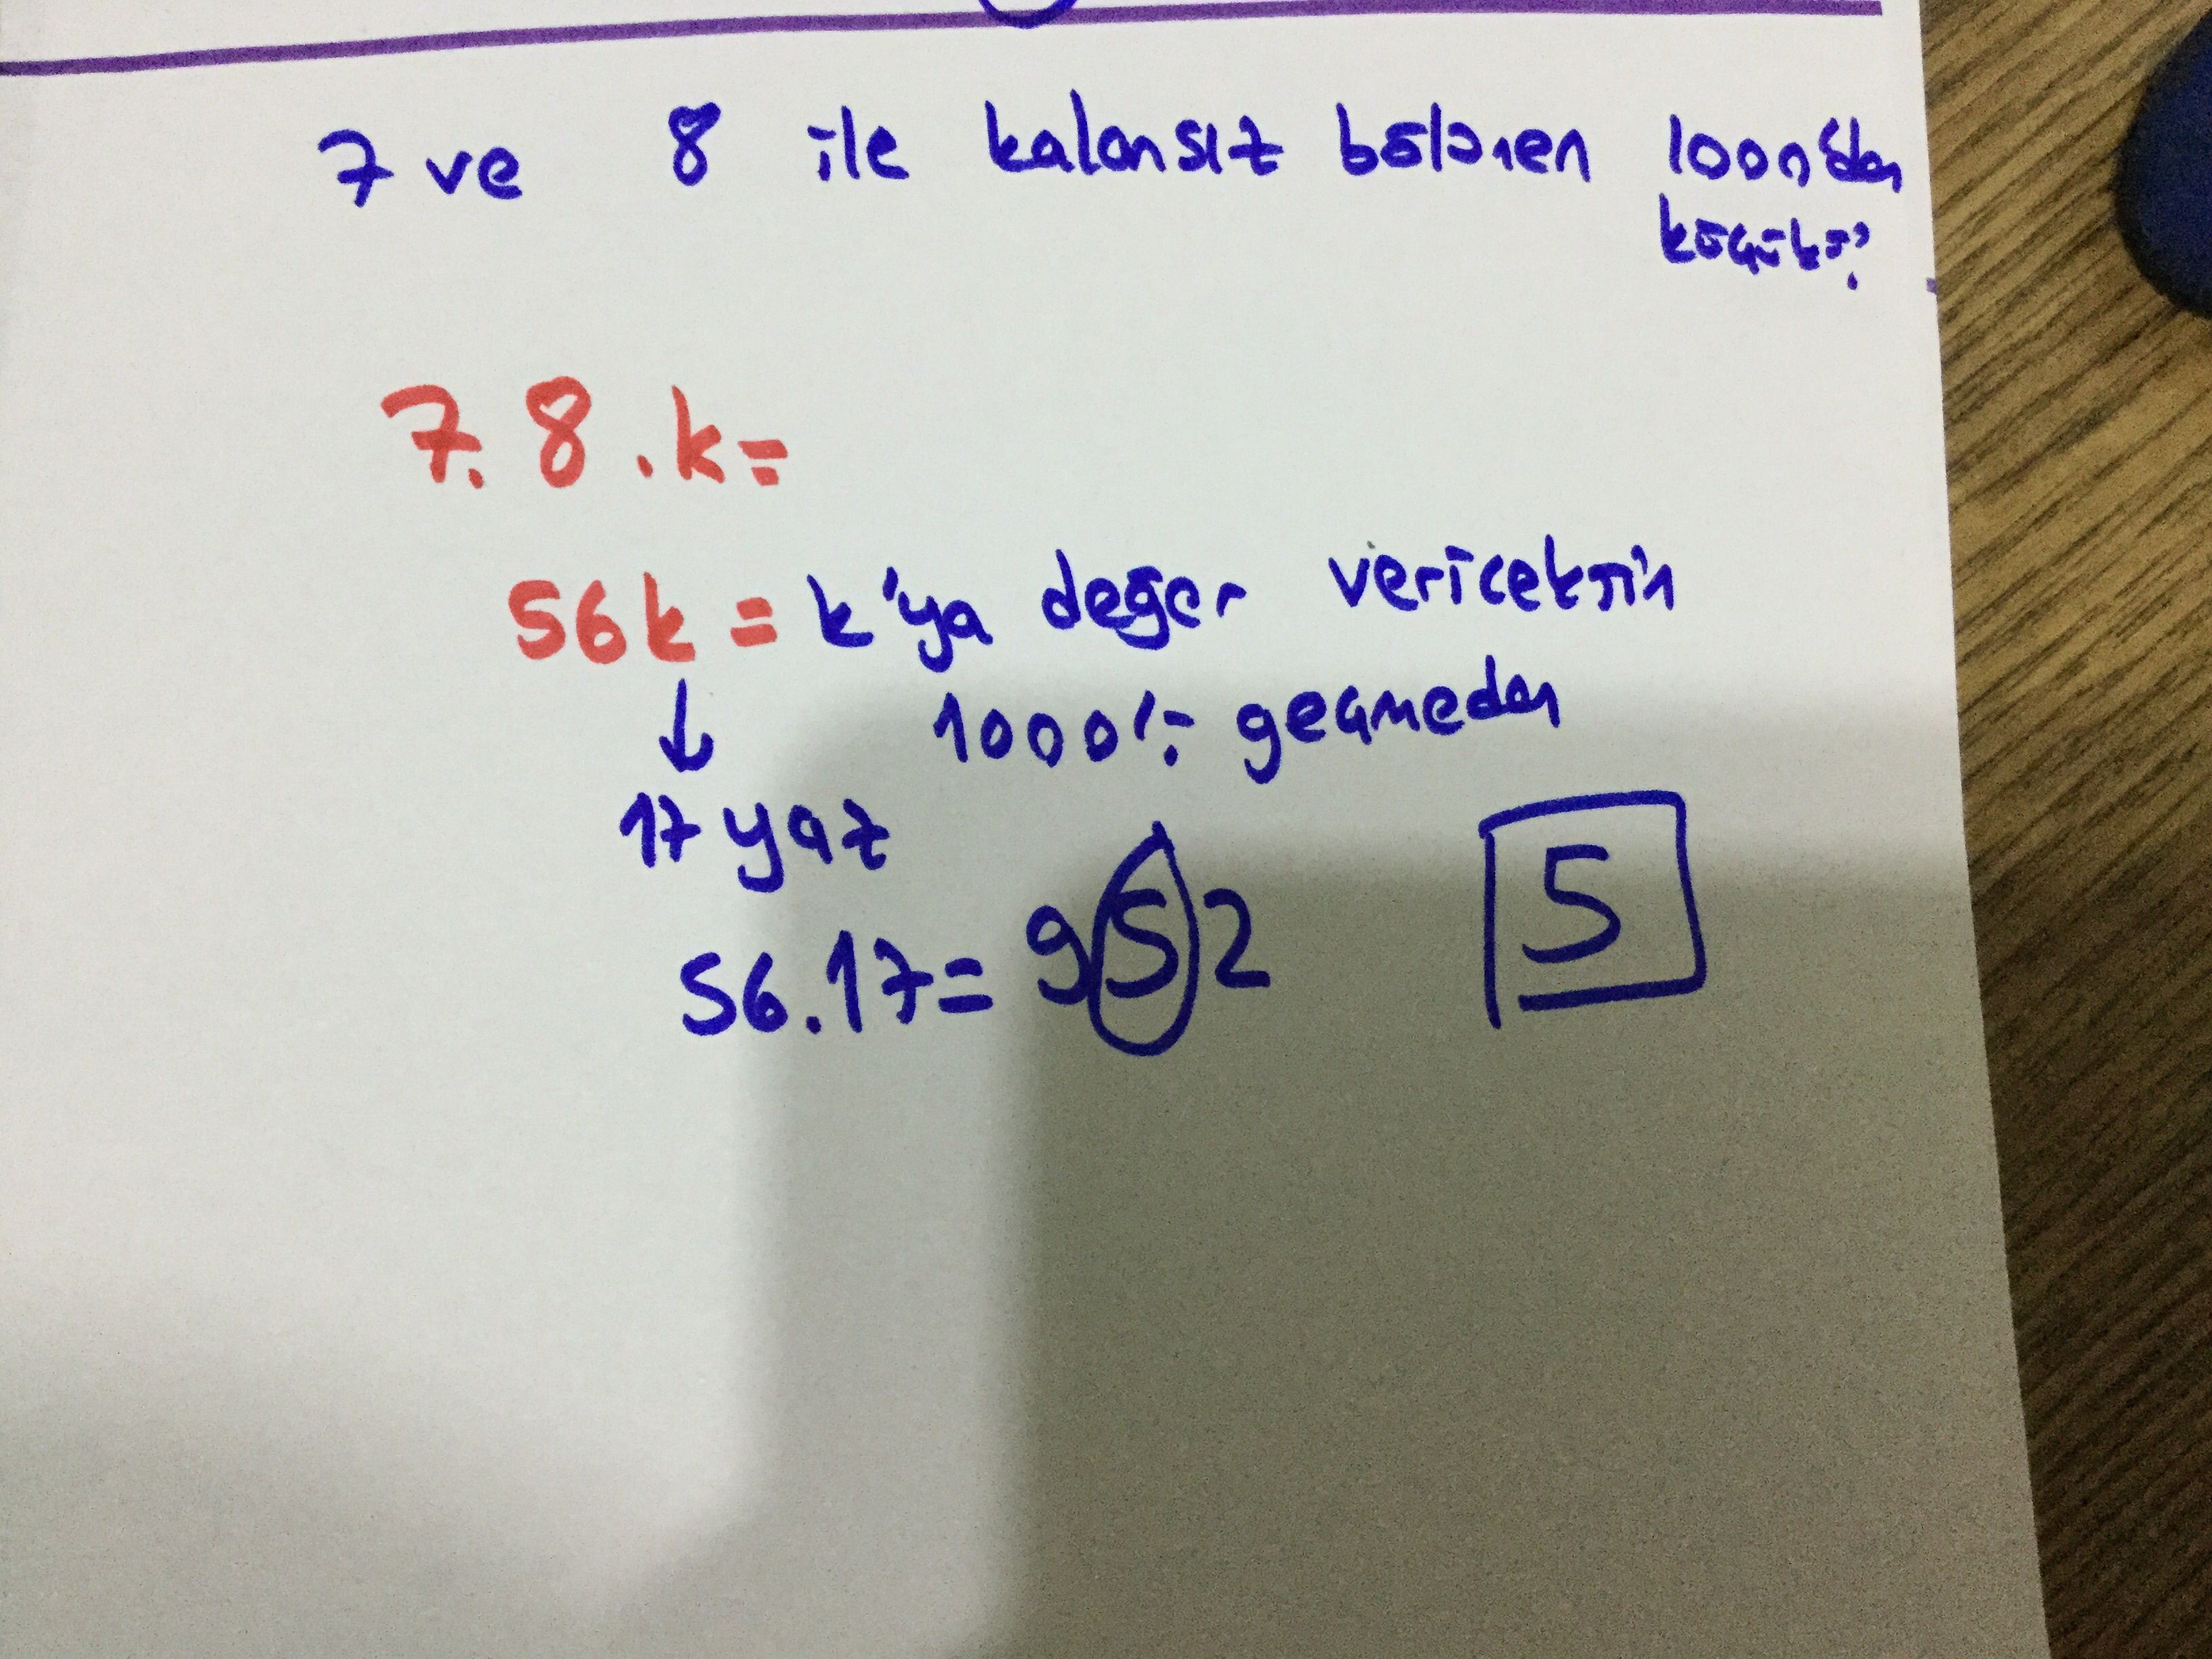 7 ve 8 ile kalansız bölünen 1000'den
küçük?
7.8.k=
56k = k'ya değer vericeksin
↓ 1000'i geçmeden
17 yaz
56.17= 952
5